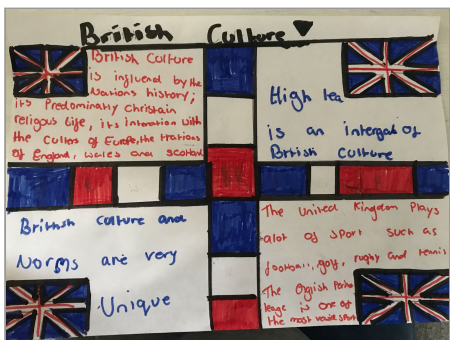 British Culture
British Culture
is influend by the
Nations history;
its Predominatly Christain
religous life, its interation with
the cultes of Europe, the trations
of England, wales and scotland
High tea
is an intergal of
British Culture
British culture and
Norms are very
Unique
The United Kingdom Plays
alot of Sport such as
football, golf, rugby and tennis
The English
leage is one of
the most